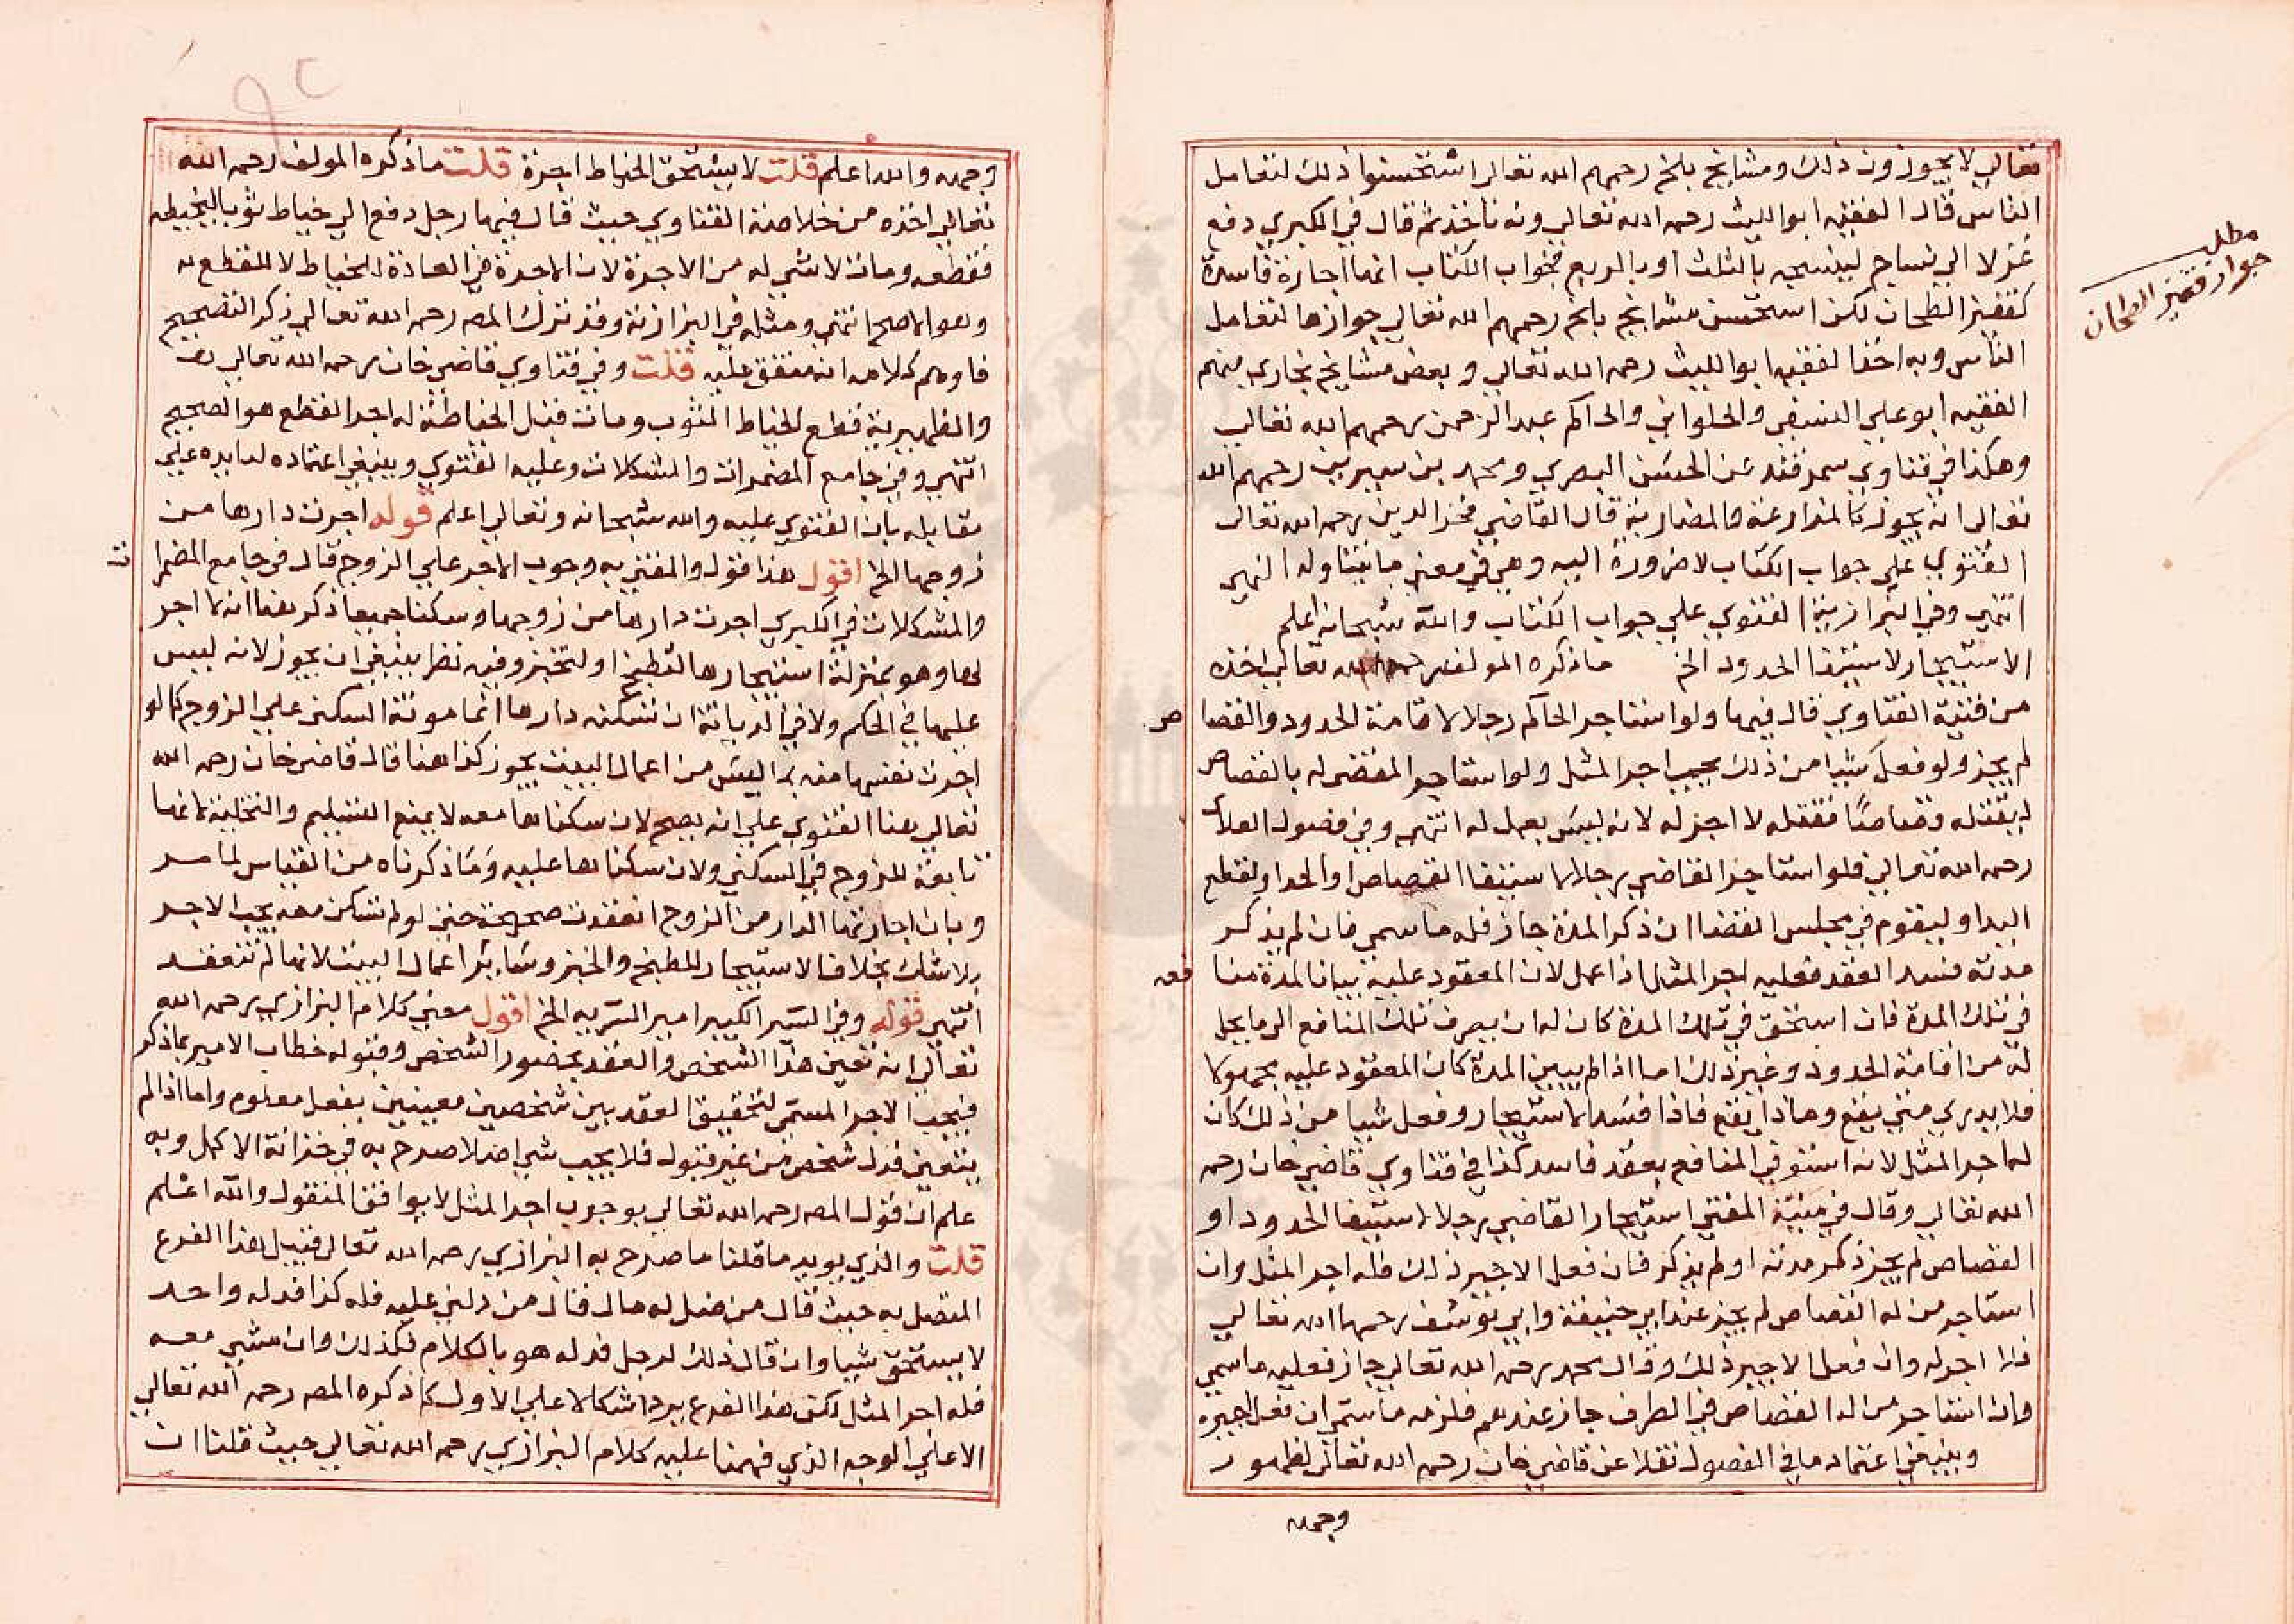 تعالي لا يجوزون ذلك ومشايخ بلخ رحمهم الله تعالي استحسنوا ذلك لتعامل
الناس قال الفقيه ابو الليث رحمه الله تعالي وبه ناخذ ثم قال في الكبري دفع
غزلا الي نساج لينسجه بالثلث او بالربع فجواب الكتاب انها اجارة فاسدة
كقفيز الطحان لكن استحسن مشايخ بلخ رحمهم الله تعالي جوازها لتعامل
الناس وبه اخذ الفقيه ابو الليث رحمه الله تعالي وبعض مشايخ بخاري منهم
الفقيه ابو علي النسفي والحلواني والحاكم عبد الرحمن رحمهم الله تعالي
وهكذا في فتاوي سمرقند عن الحسن البصري ومحمد بن سيرين رحمهم الله
تعالي انه يجوز كالمزارعة والمضاربة قال القاضي فخر الدين رحمه الله تعالي
الفتوي علي جواب الكتاب لا ضرورة اليه وهي في معني ما يتناوله النهي
انتهي وفي البزازية الفتوي علي جواب الكتاب والله سبحانه اعلم
الاستيجار لاستيفا الحدود الخ ما ذكره المولف رحمه الله تعالي اخذه
من قنية الفتاوي قال فيها ولو استاجر الحاكم رجلا لاقامة الحدود والقصا
ص
لم يجز ولو فعل شيا من ذلك يجب اجر المثل ولو استاجر المقضي له بالقصاص
ليقتله قصاصا فقتله لا اجر له لانه ليس بعمل له انتهي وفي فصول العلائي
رحمه الله تعالي فلو استاجر القاضي رجلا لاستيفا القصاص او الحد او لقطع
اليد او ليقوم في مجلس القضا ان ذكر المدة جاز فله ما سمي فان لم يذكر
مدته فسد العقد فعليه اجر المثل اذا عمل لان المعقود عليه بيانا لمدة منا
فعه
في تلك المدة فان استحق في تلك المدة كان له ان يصرف تلك المنافع الي ما يحل
له من اقامة الحدود وغير ذلك اما اذا لم يبين المدة كان المعقود عليه مجهولا
فلا يدري متي يقع وماذا يقع فاذا فسد الاستيجار وفعل شيا من ذلك كان
له اجر المثل لانه استوفي المنافع بعقد فاسد كذا في فتاوي قاضي خان رحمه
الله تعالي وقال في منية المفتي استيجار القاضي رجلا لاستيفا الحدود او
القصاص لم يجز ذكر مدته او لم يذكر فان فعل الاجير ذلك فله اجر المثل وان
استاجر من له القصاص لم يجز عند ابي حنيفة وابي يوسف رحمهما الله تعالي
فلا اجر له وان فعل الاجير ذلك وقال محمد رحمه الله تعالي جاز فعليه ما سمي
وان استاجر من له القصاص في الطرف جاز عندهم فلزمه ما سمي ان فعل اجيره
وينبغي اعتماد ما في الفصول نقلا عن قاضي خان رحمه الله تعالي لظهور
وجهه
مطلب
جواز قفيز الطحان
وجهه والله اعلم قلت لا يستحق الخياط اجرة قلت ما ذكره المولف رحمه الله
تعالي اخذه من خلاصة الفتاوي حيث قال فيها رجل دفع الي خياط ثوبا ليخيطه
فقطعه ومات لا شي له من الاجرة لان الاجرة في العادة للخياط لا للقطع
وهو الاصح انتهي ومثله في البزازية وقد ترك المص رحمه الله تعالي ذكر التصحيح
فاوهم كلامه انه متفق عليه قلت وفي فتاوي قاضي خان رحمه الله تعالي
والظهيرية قطع الخياط الثوب ومات قبل الخياطة له اجر القطع هو الصحيح
انتهي وفي جامع المضمرات والمشكلات وعليه الفتوي وينبغي اعتماده لتاييده علي
مقابله بان الفتوي عليه والله سبحانه وتعالي اعلم قوله اجرت دارها من
زوجها الخ اقول هذا قول والمفتي به وجوب الاجر علي الزوج قال في جامع المضمرا
ت
والمشكلات في الكبري اجرت دارها من زوجها وسكنا جميعا ذكر هنا انه لا اجر
لها وهو بمنزلة استيجارها لتطبخ او لتخبز وفيه نظر ينبغي ان يجوز لانه ليس
عليها في الحكم ولا في الديانة ان تسكنه دارها انما مونة السكني علي الزوج كما لو
اجرت نفسها منه بما ليس من اعمال البيت يجوز كذا هنا قال قاضي خان رحمه الله
تعالي هنا الفتوي علي انه يصح لان سكناها معه لا يمنع التسليم والتخلية لانها
تابعة للزوج في السكني ولان سكناها عليه وما ذكرناه من القياس لما مر
وبان اجارتها الدار من الزوج انعقدت صحيحة حتي لو لم تسكن معه يجب الاجر
بلا شك بخلاف الاستيجار للطبخ والخبز وسائر اعمال البيت لانها لم تنعقد
انتهي قوله وفي السير الكبير امير السرية الخ اقول معني كلام البزازي رحمه الله
تعالي انه تعين هذا الشخص والعقد بحضور الشخص وقبوله خطاب الامير بما ذكر
فيجب الاجر المسمي لتحقيق العقد بين شخصين معينين بفعل معلوم واما اذا لم
يتعين فدل شخص من غير قبوله فلا يجب شي اصلا صرح به في خزانة الاكمل وبه
علم ان قول المص رحمه الله تعالي بوجوب اجر المثل لا يوافق المنقول والله اعلم
قلت والذي يويد ما قلنا ما صرح به البزازي رحمه الله تعالي قبيل هذا الفرع
المتصل به حيث قال من ضل له مال فقال من دلني عليه فله كذا فدله واحد
لا يستحق شيا وان قال ذلك لرجل فدله هو بالكلام فكذلك وان مشي معه
فله اجر المثل لكن هذا الفرع يرد اشكالا علي الاول كما ذكره المص رحمه الله تعالي
الا علي الوجه الذي فهمنا عليه كلام البزازي رحمه الله تعالي حيث قلنا ان